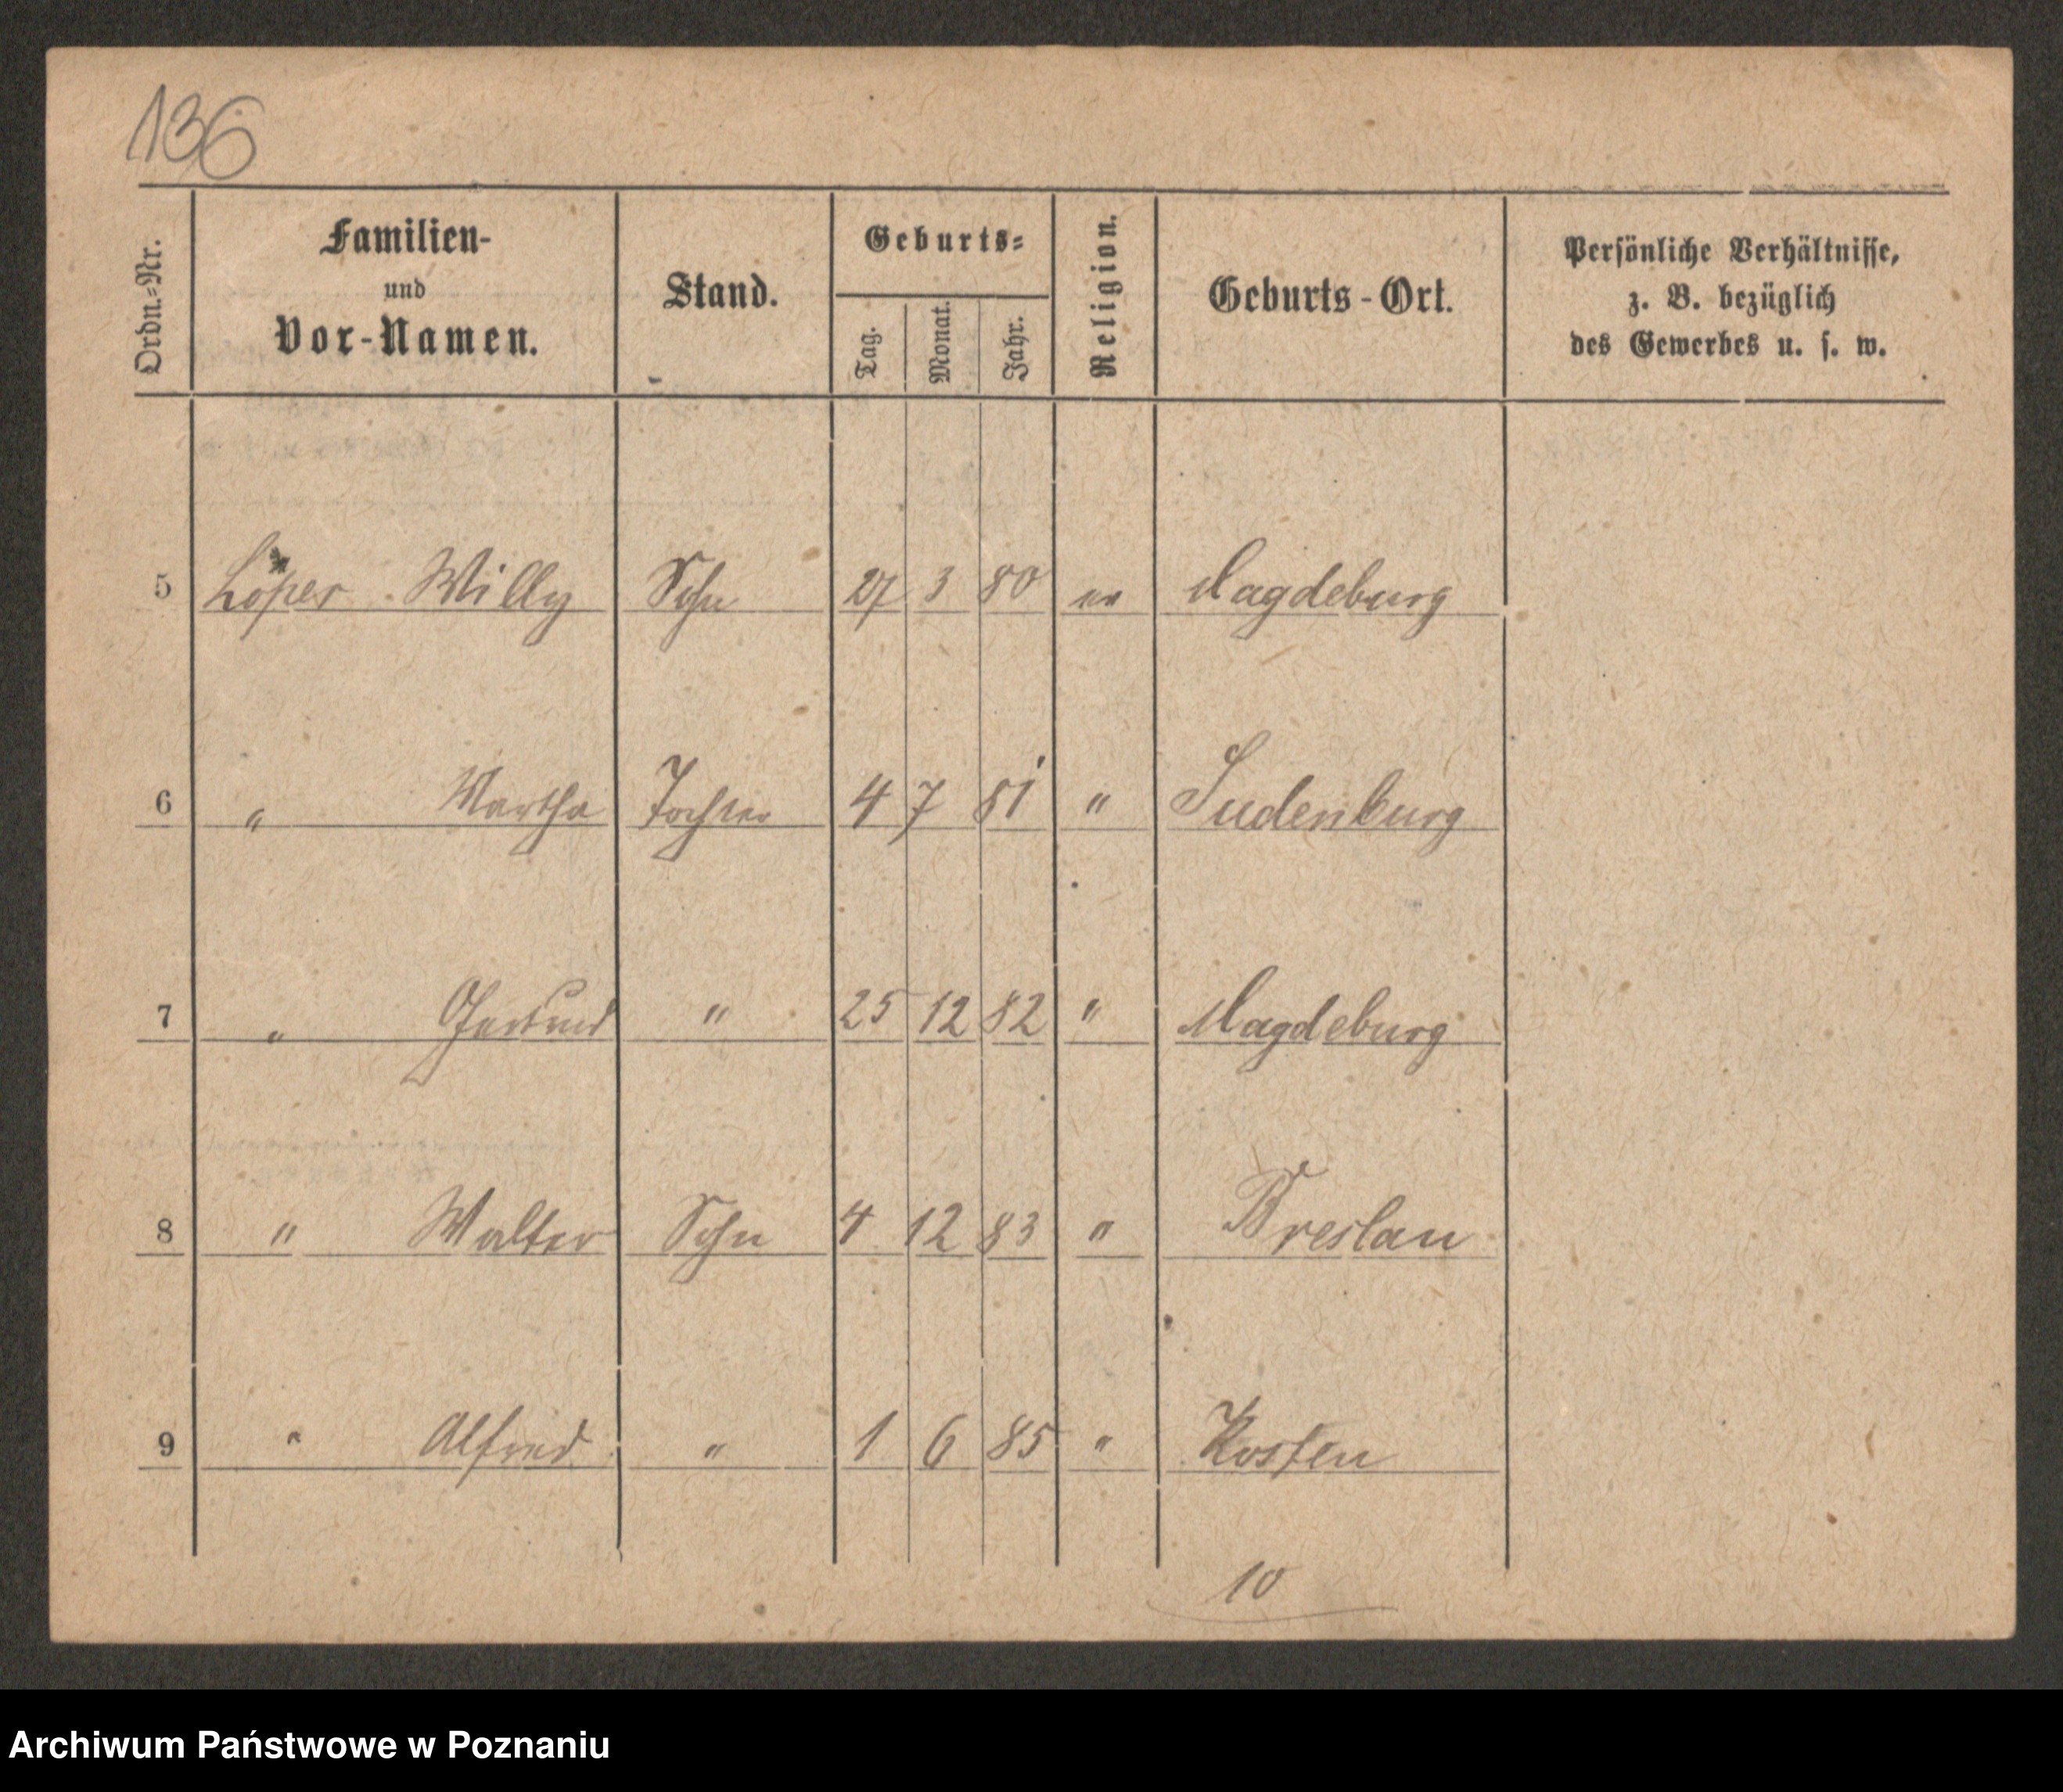 136
Ordn.-Nr.
Familien-
und
Vor-Namen.
Stand.
Geburts-
Tag.
Monat.
Jahr.
Religion.
Geburts-Ort.
Persönliche Verhältnisse,
z. B. bezüglich
des Gewerbes u. s. w.
5 Löper Willy Sohn 27 3 80 ev Magdeburg
6 " Martha Tochter 4 7 81 " Sudenburg
7 " Gertrud " 25 12 82 " Magdeburg
8 " Walter Sohn 4 12 83 " Breslau
9 " Alfred " 1 6 85 " Kosten
10
Archiwum Państwowe w Poznaniu